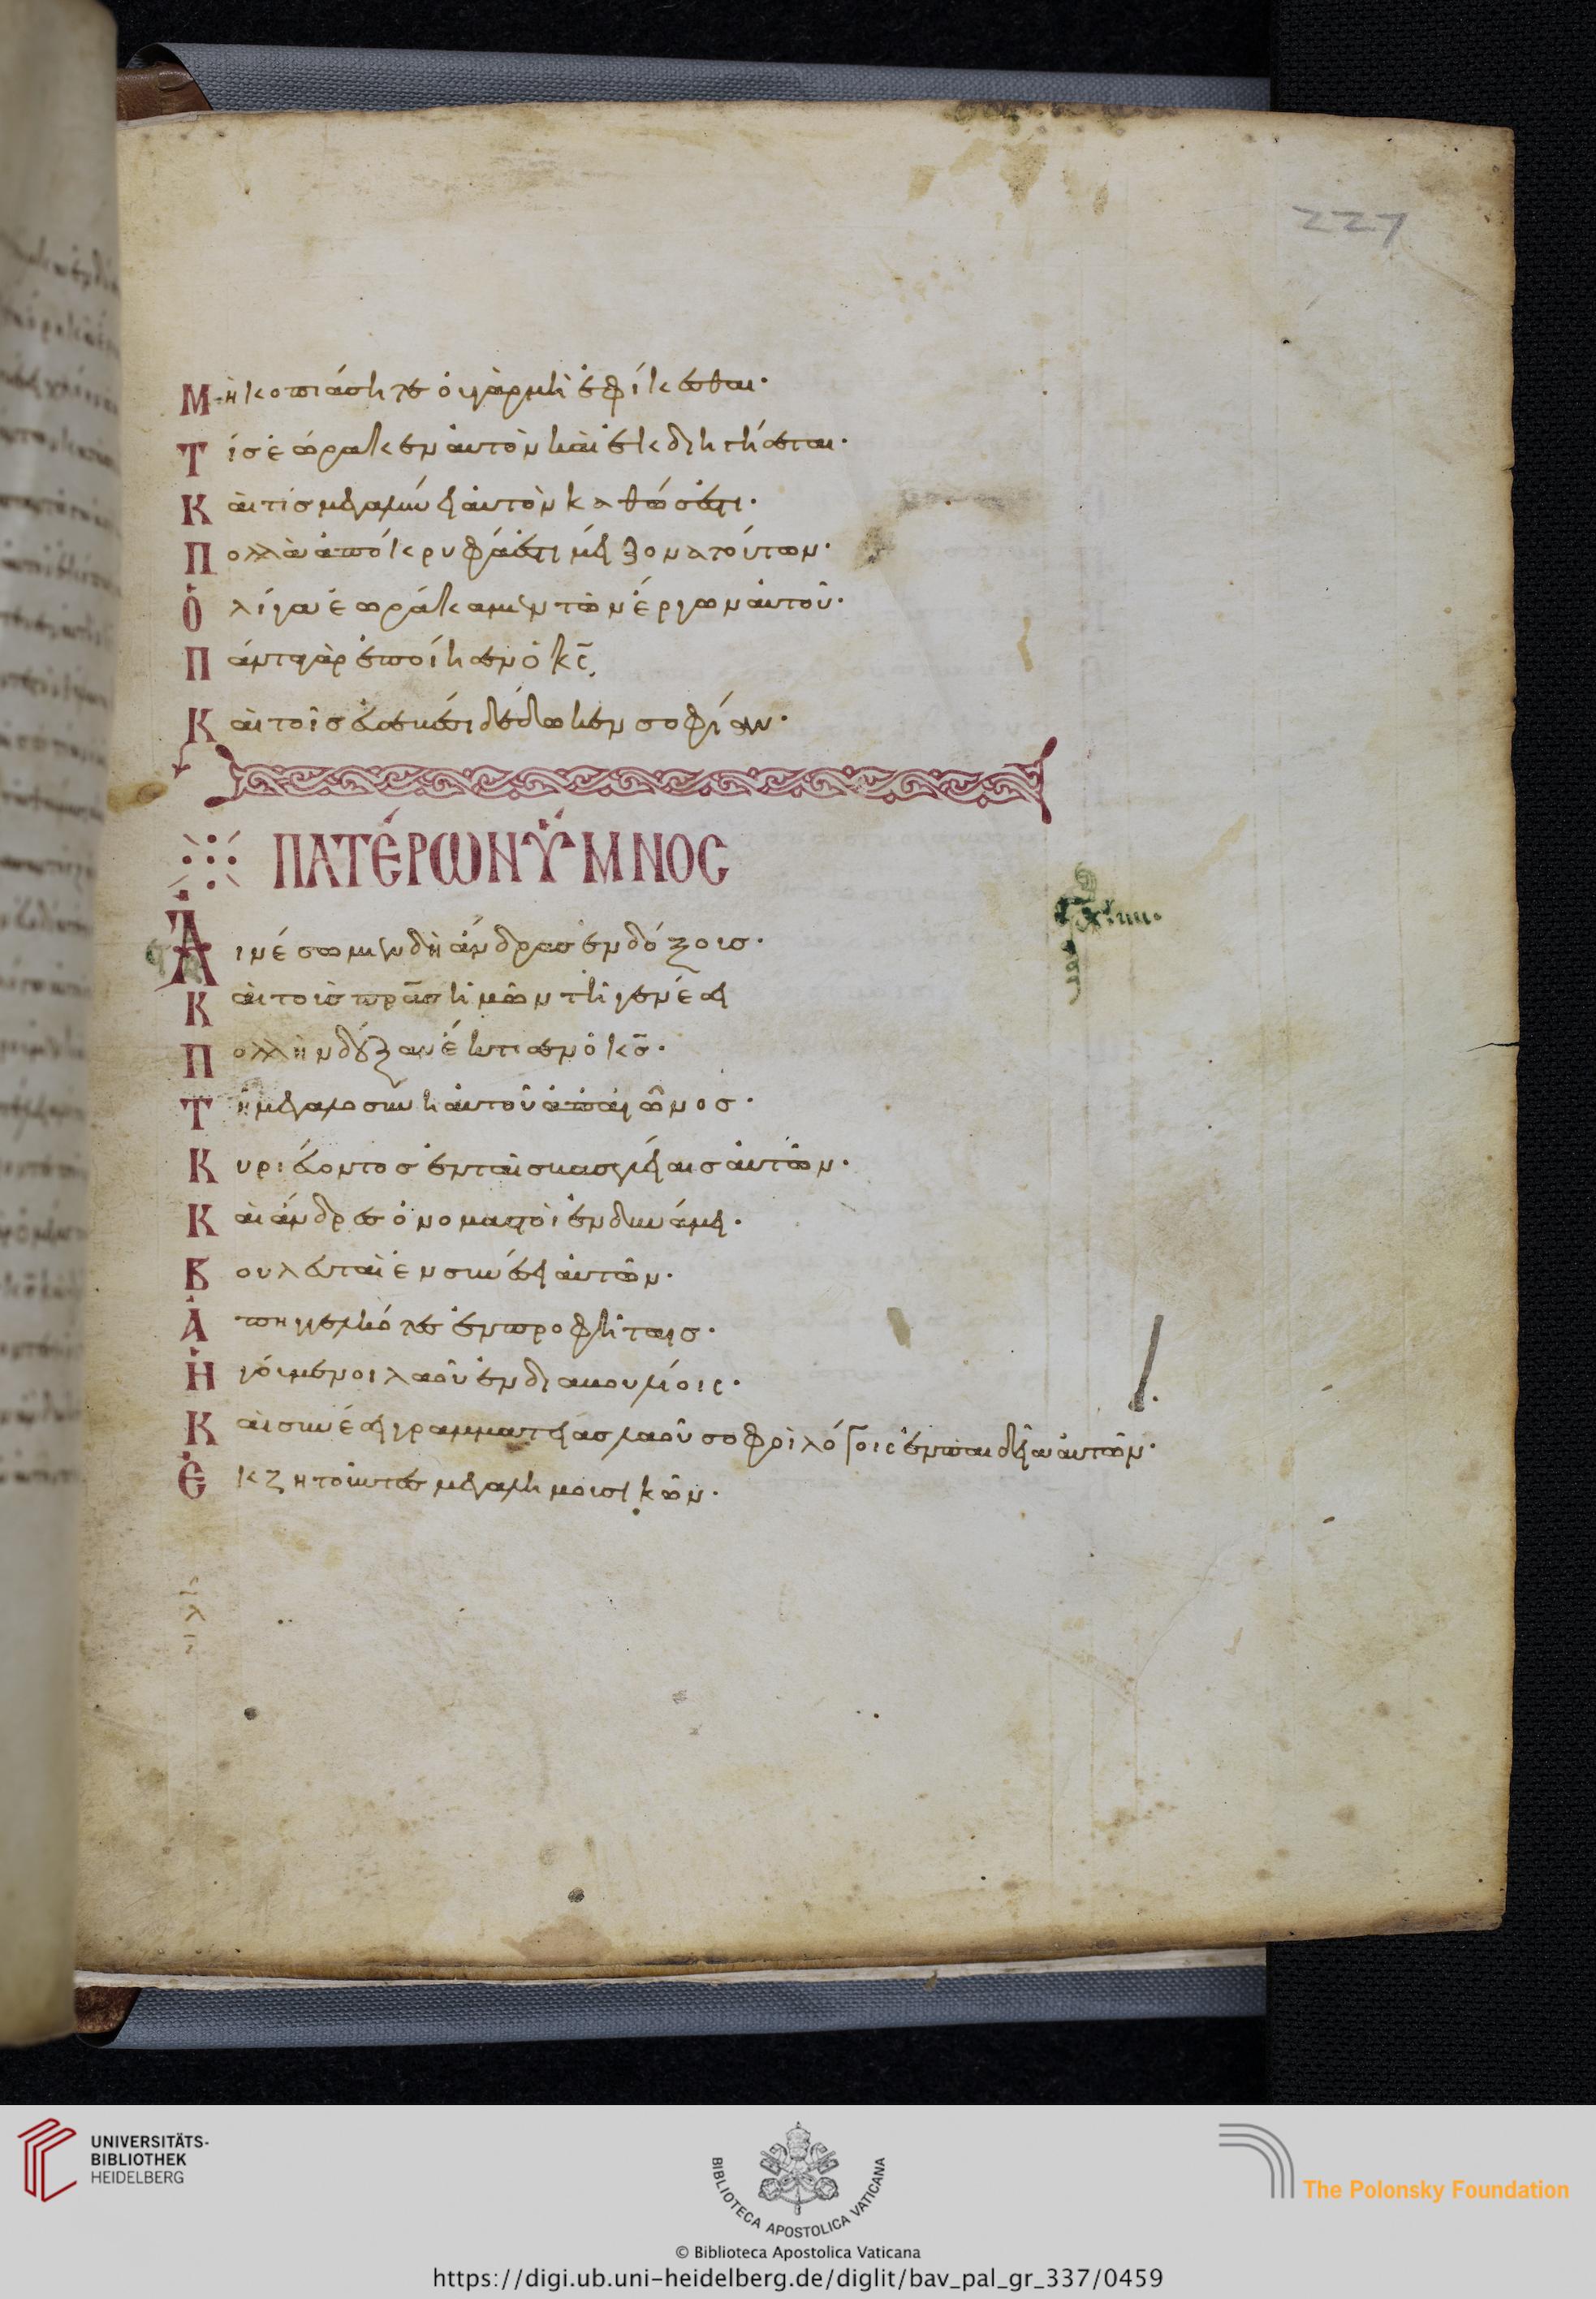 227
Μὴ κοπιάσητε ὁυ γὰρ μὴ ἐφίκεσθαι·
Τίς ἑώρακεν ἀυτὸν καὶ ἐκδιητήσεται·
Καὶ τίς μεγαλύνει ἀυτὸν καθώς ἐστι·
Πολλὰ ἀπόκρυφά ἐστι μείζονα τούτων·
Ὀλίγα ἑωράκαμεν τῶν ἔργων ἀυτοῦ·
Πάντα γὰρ ἐποίησεν ὁ κς̄
Καὶ τοῖς ἐυσεβέσι δέδωκεν σοφίαν·
ΠΑΤΈΡΩΝ ὝΜΝΟΣ
Αἰνέσωμεν δὴ ἄνδρας ἐνδόξοις·
Καὶ τοὶς πρ̄ας ἡμῶν τῆ γενέσει
Πολλὴν δόξαν ἔκτισεν ὁ κς̄·
Τῆ μεγαλοσύνη ἀυτοῦ ἀπαιῶνος·
Κυριέυοντος ἐν ταὶς βασιλείαις ἀυτῶν·
Καὶ άνδρες ὀνομαστοὶ ἐν δυνάμει·
Βουλευταὶ ἐν συνέσει ἀυτῶν·
Ἀπηγγελκότες ἐν προφητίαις·
Ἡγόυμενοι λαοῦ ἐν διαβουλίοις·
Καὶ συνέσει γραμματείας λαοῦ σοφοὶ λόγοις ἐν παιδεία ἀυτῶν·
Ἐκζητοῦντες μέλη μουσικῶν·
UNIVERSITÄTS-
BIBLIOTHEK
HEIDELBERG
BIBLIOTECA APOSTOLICA VATICANA
The Polonsky Foundation
© Biblioteca Apostolica Vaticana
https://digi.ub.uni-heidelberg.de/diglit/bav_pal_gr_337/0459